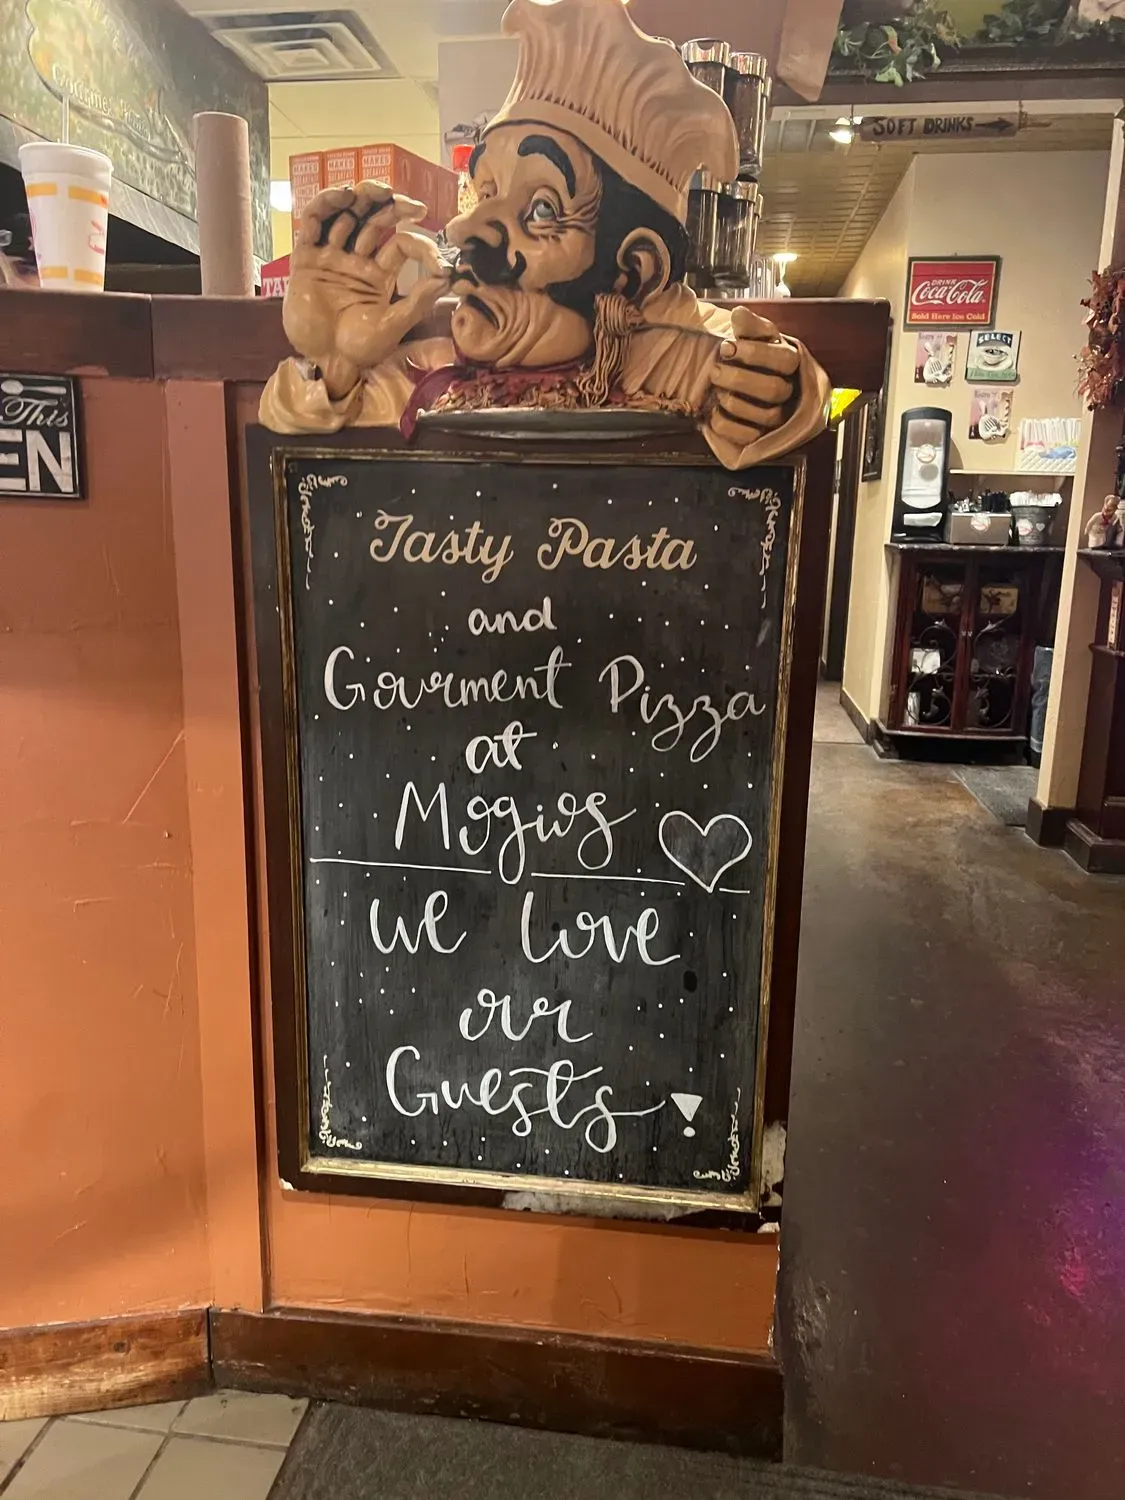 SOFT DRINKS
DRINK
Coca-Cola
Sold Here Ice Cold
SELECT
This
EN
Tasty Pasta
and
Gourment Pizza
at
Mogios
we love
our
Guests!